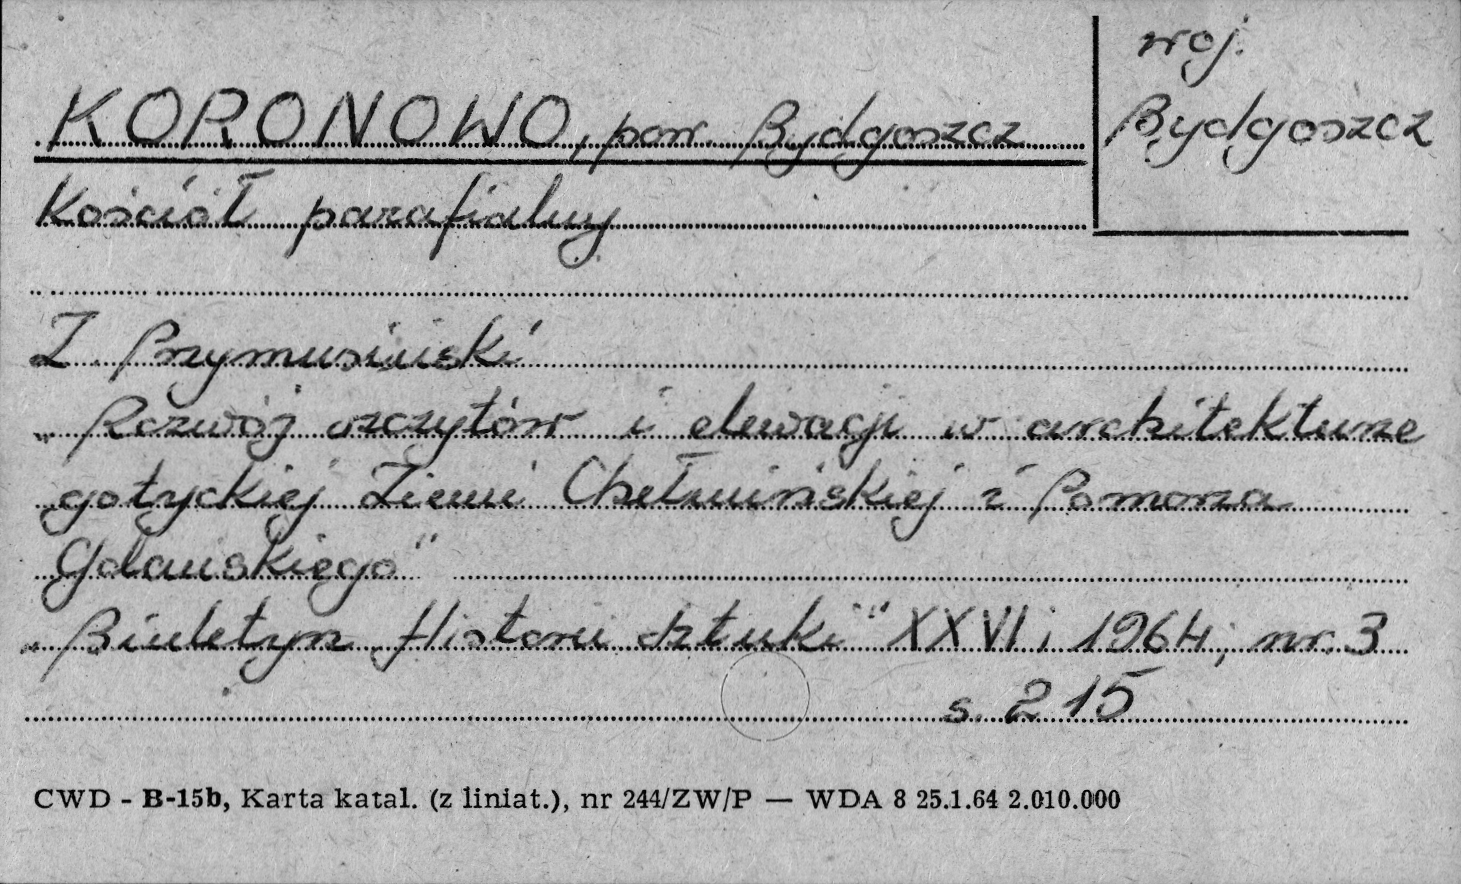 KORONOWO, pow. Bydgoszcz
woj.
Bydgoszcz
Kościół parafialny
Z. Przymusiński
„Rozwój szczytów i elewacji w architekturze
gotyckiej Ziemi Chełmińskiej i Pomorza
Gdańskiego"
„Biuletyn Historii sztuki" XXVI; 1964; nr. 3
s. 215
CWD - B-15b, Karta katal. (z liniat.), nr 244/ZW/P — WDA 8 25.1.64 2.010.000